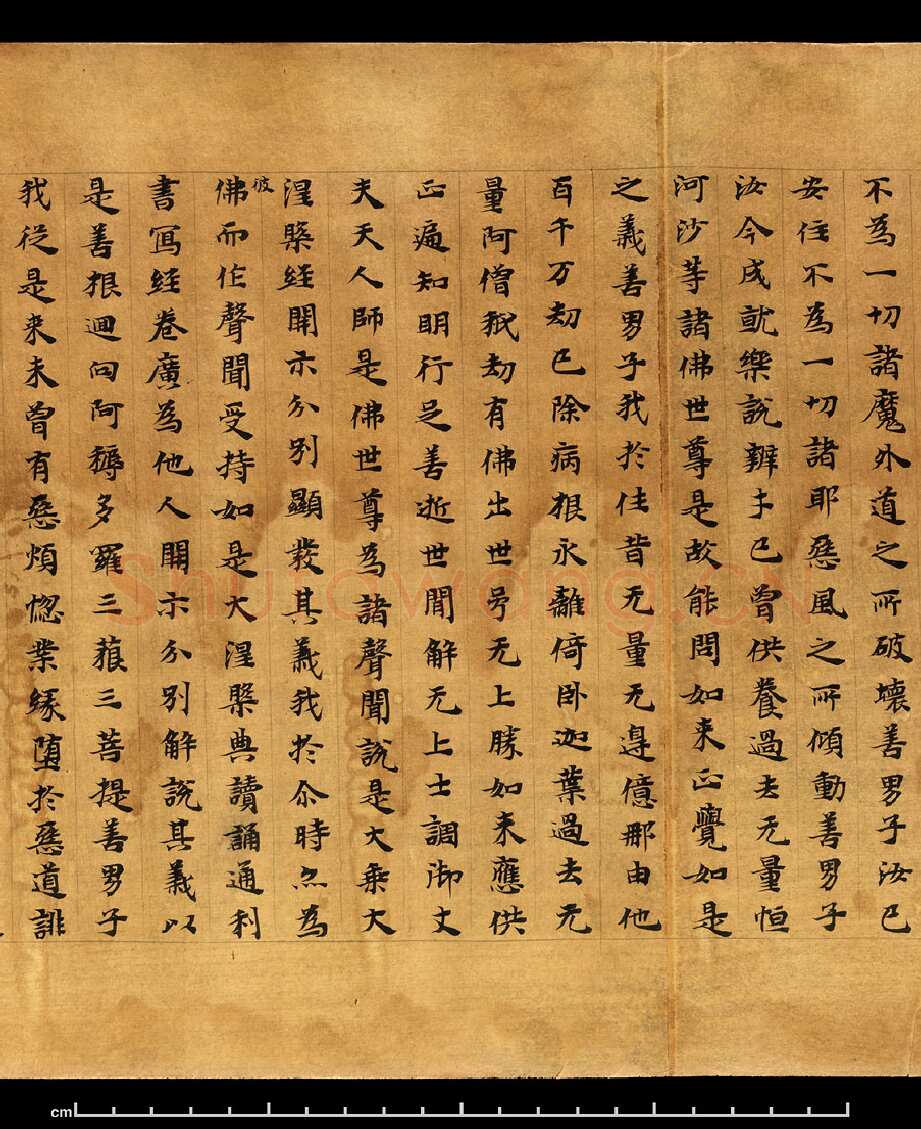 不為一切諸魔外道之所破壞善男子汝已
安住不為一切諸耶惡風之所傾動善男子
汝今成就樂說辯才已曾供養過去无量恒
河沙等諸佛世尊是故能問如來正覺如是
之義善男子我於住昔无量无邊億那由他
百千万劫已除病根永離倚卧迦葉過去无
量阿僧秖劫有佛出世号无上勝如来應供
正遍知明行足善逝世間解无上士調御丈
夫天人師是佛世尊為諸聲聞說是大乗大
涅槃經開示分別顯發其義我於尒時亦為
彼佛而作聲聞受持如是大涅槃典讀誦通利
書寫經卷廣為他人開示分別解說其義以
是善根迴向阿耨多羅三藐三菩提善男子
我從是来未曾有惡煩惱業緣堕於惡道誹
Shufawang.CN
cm